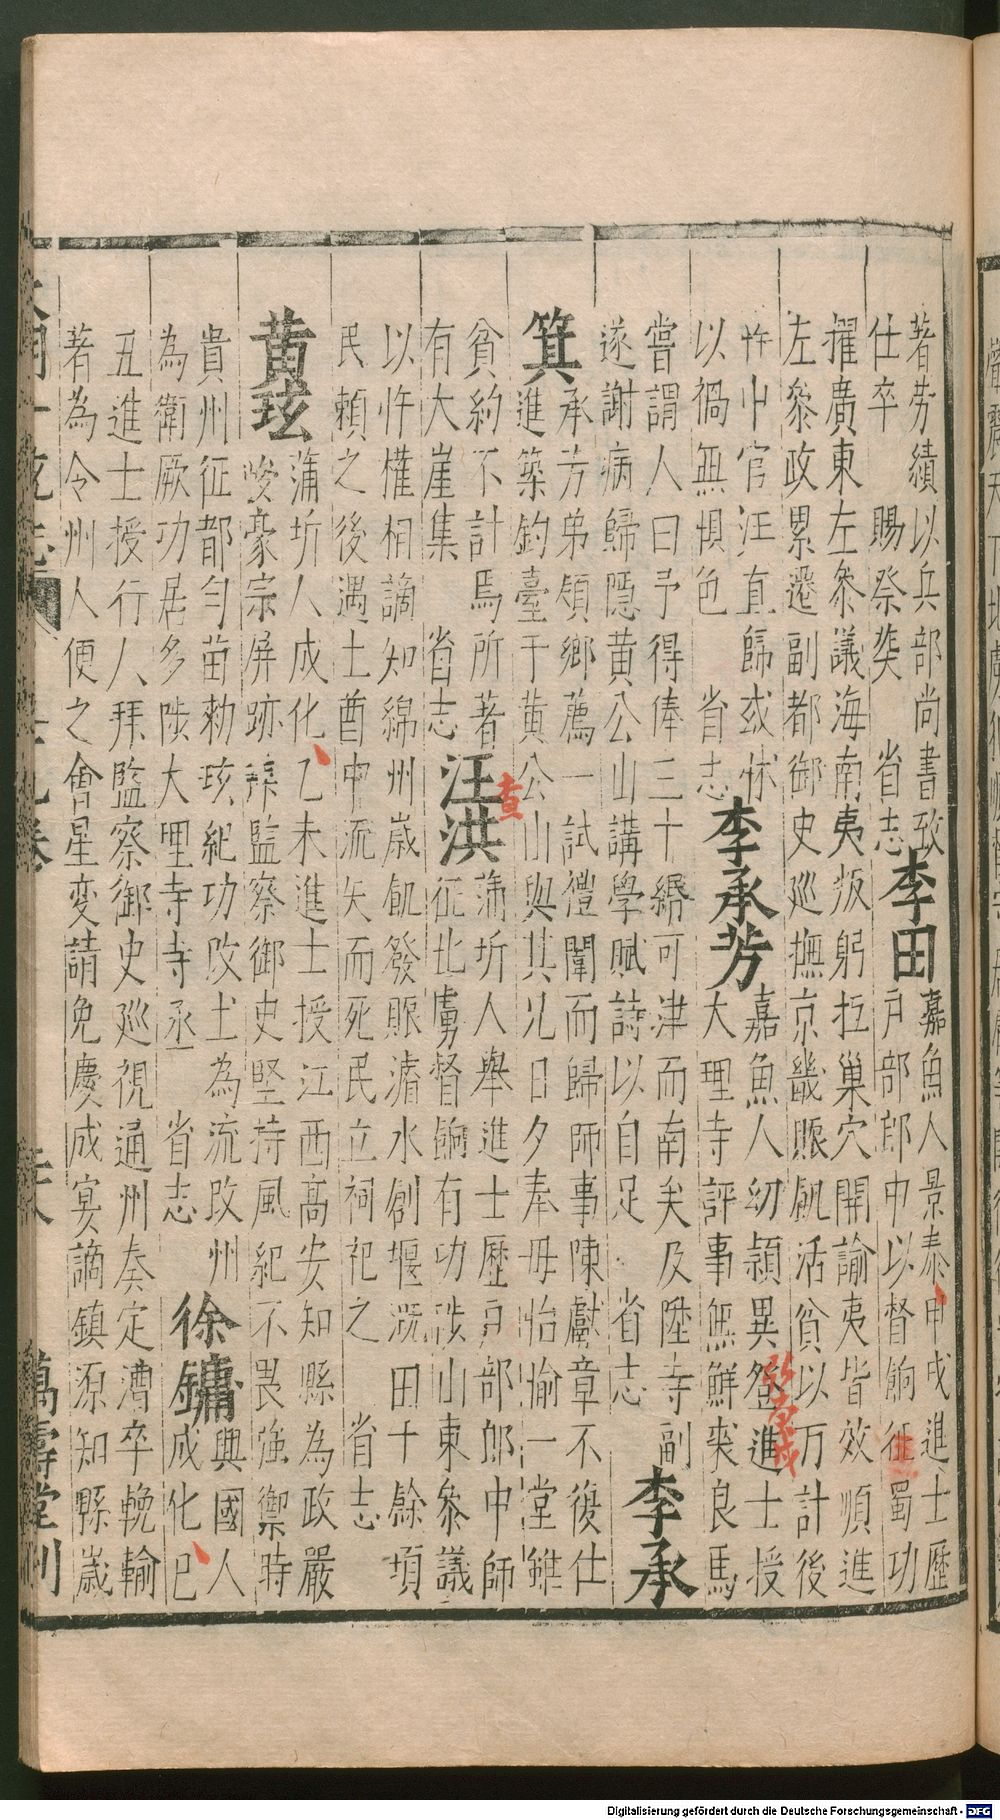 著劳績以兵部尚書致
仕卒　賜祭塟　省志
李田
嘉魚人景泰甲戌進士歷
戶部郎中以督餉征蜀功
擢廣東左叅議海南夷叛躬抵巢穴開諭夷皆效順進
左叅政累遷副都御史廵撫京畿賑飢活貧以万計後
忤中官汪直歸或怵
以禍無惧色　省志
李承芳
嘉魚人幼穎異登進士授
大理寺評事無鮮裘良馬
弘治庚戌
嘗謂人曰予得俸三十緡可津而南矣及陞寺副
遂謝病歸隱黄公山講學賦詩以自足　省志
李承
箕
承芳弟領鄉薦一試禮闈而歸師事陳獻章不復仕
進築釣臺于黄公山與其兄日夕奉母怡愉一堂雖
貧約不計焉所著
有大崖集　省志
汪洪
查
蒲圻人舉進士歷戶部郎中師
征北虜督餉有功陟山東叅議
以忤權相謫知綿州歲飢發賑濬水創堰溉田千餘頃
民賴之後遇土酋中流矢而死民立祠祀之　省志
黄玹
蒲圻人成化乙未進士授江西高安知縣為政嚴
峻豪宗屏跡擢監察御史堅持風紀不畏強禦時
貴州征都勻苗勅玹紀功改土為流改州
為衛厥功居多陟大理寺寺丞　省志
徐鏞
興國人
成化己
丑進士授行人拜監察御史廵視通州奏定漕卒輓輸
著為令州人便之會星变請免慶成宴謫鎮源知縣歲
萬壽堂刊
Digitalisierung gefördert durch die Deutsche Forschungsgemeinschaft - DFG